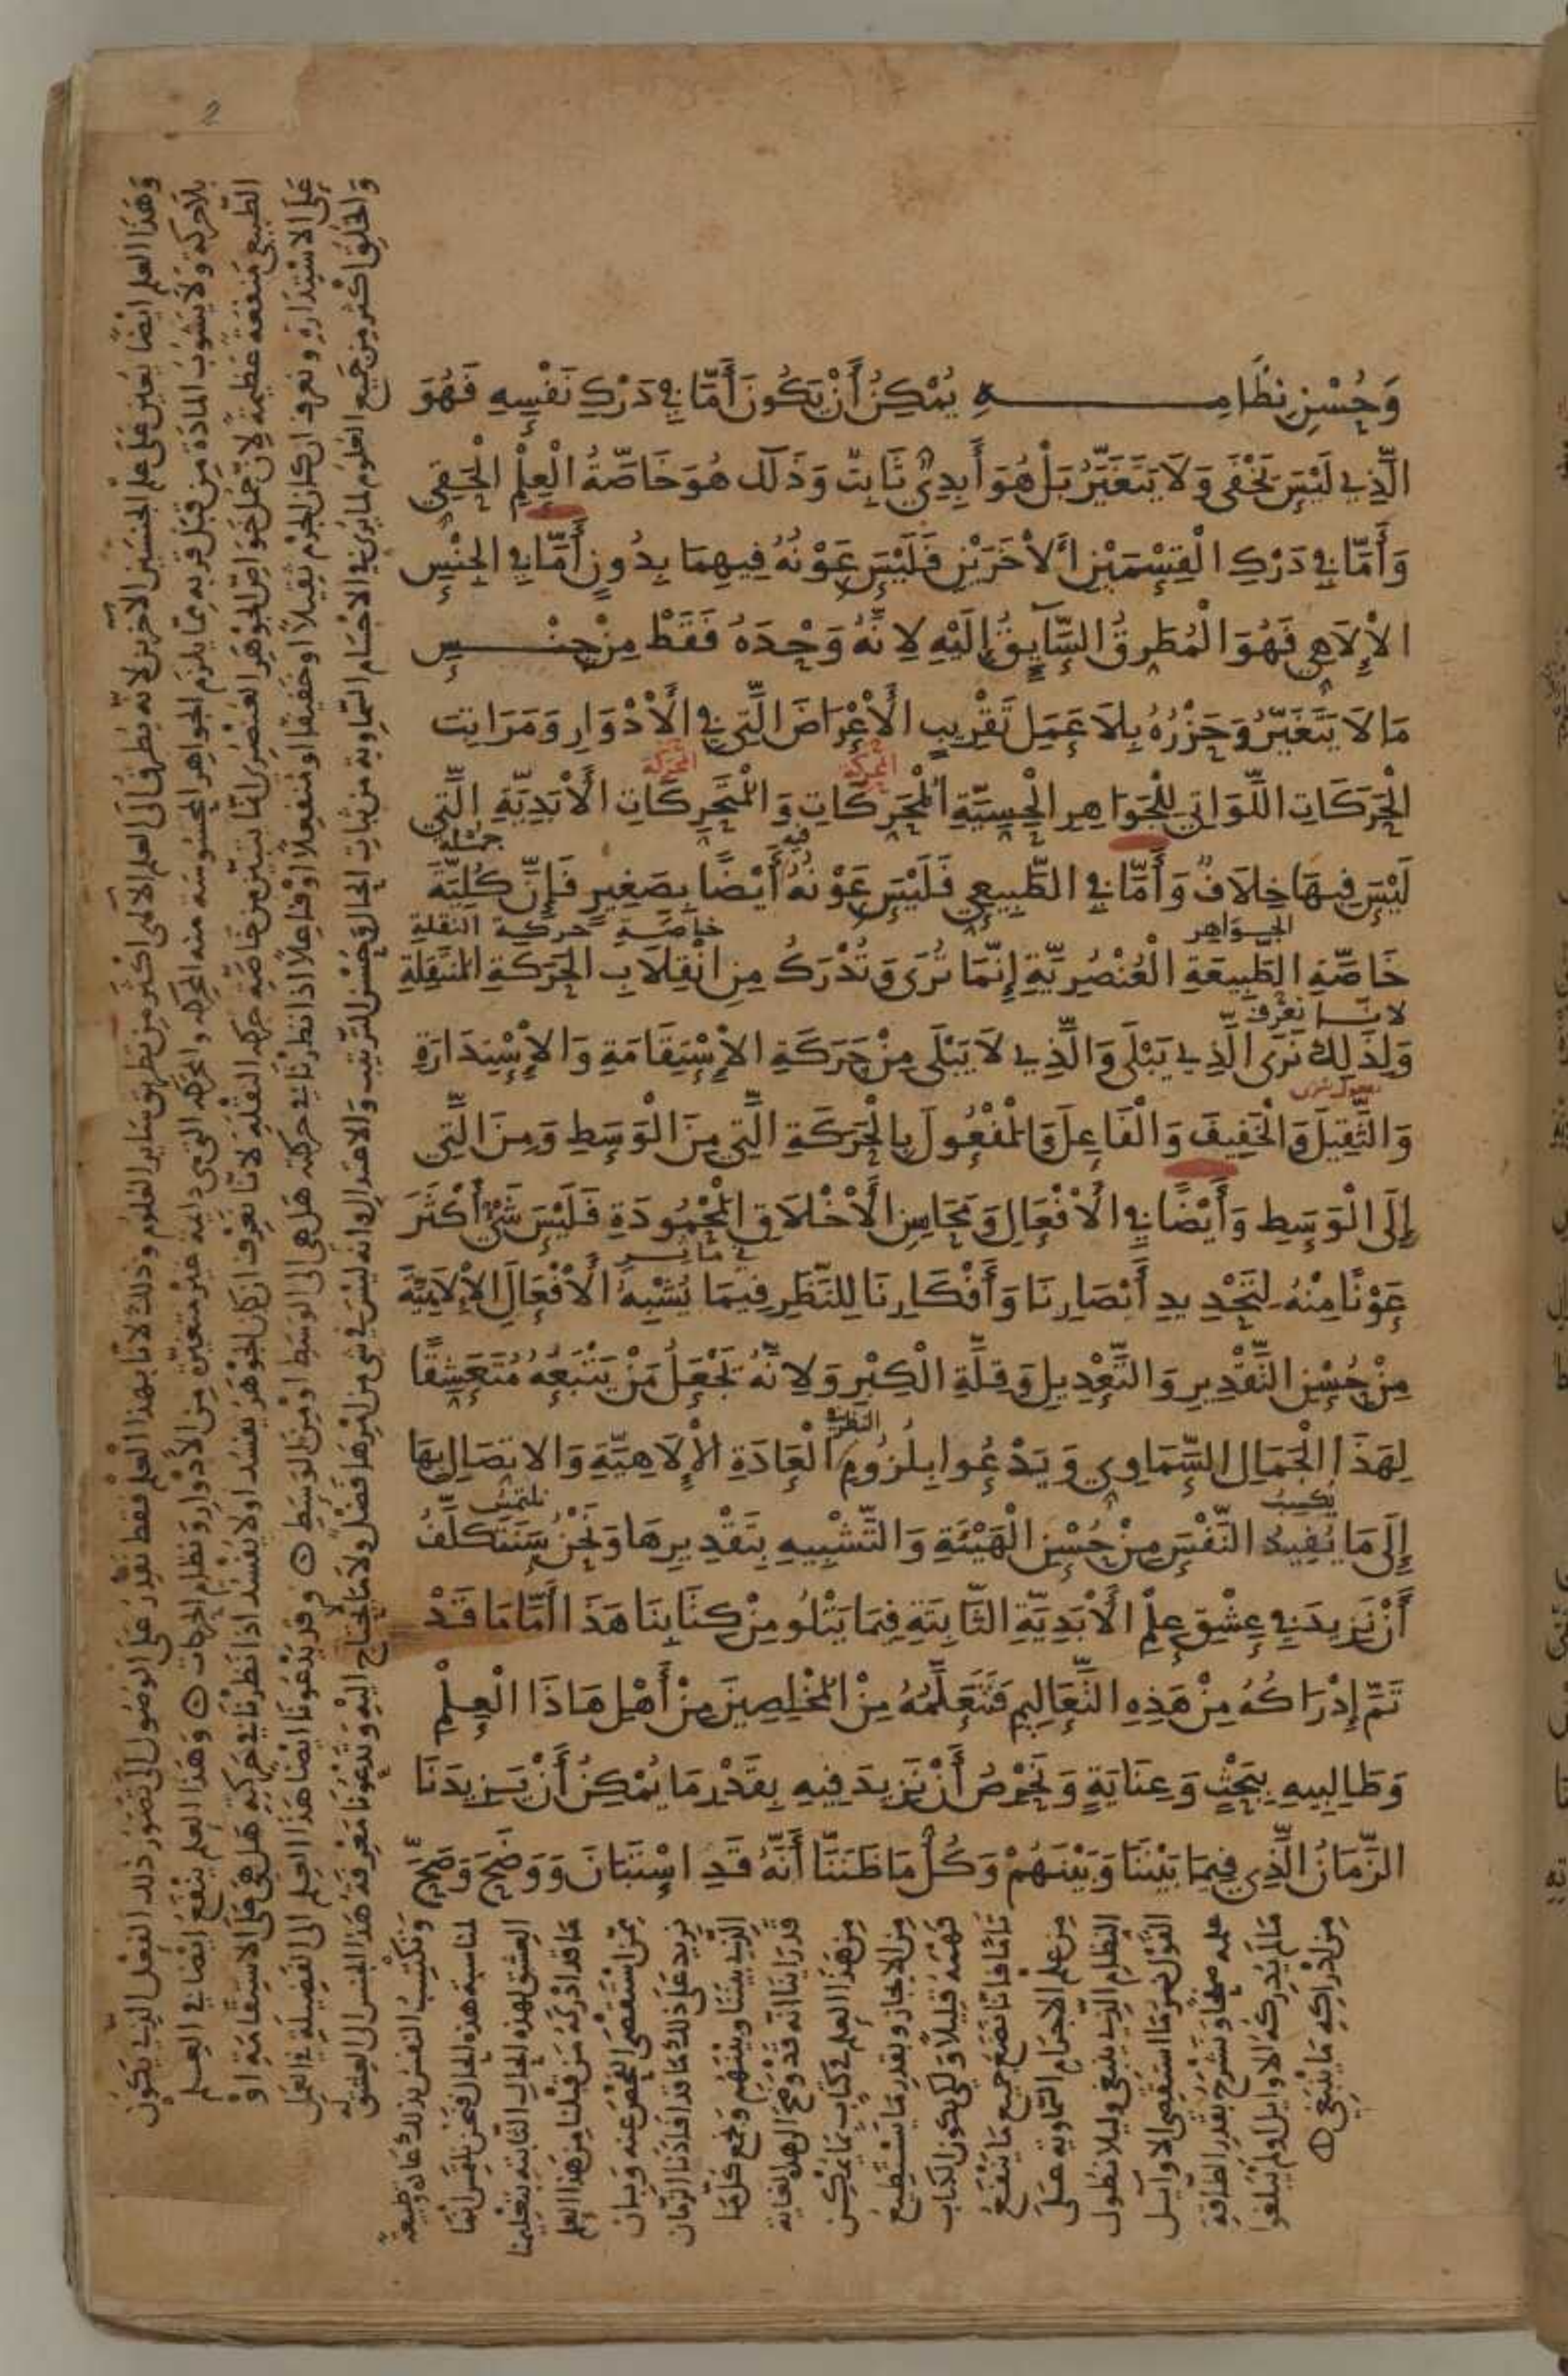 وَحُسْنِ نِظَامِهِ يُمْكِنُ أَنْ يَكُونَ أَمَّا فِي دَرْكِ نَفْسِهِ فَهُوَ
الَّذِي لَيْسَ يَخْفَى وَلَا يَتَغَيَّرُ بَلْ هُوَ أَبَدِيٌّ ثَابِتٌ وَذَلَكَ هُوَ خَاصَّةُ الْعِلْمِ الْحَقِي
وَأَمَّا فِي دَرْكِ الْقِسْمَيْنِ الْأَخَرَيْنِ فَلَيْسَ عَوْنُهُ فِيهِمَا بِدُونٍ أَمَّا فِي الْجِنْسِ
الْإِلَاهِي فَهُوَ الْمُطَرِقُ السَّايِقُ إِلَيْهِ لِانَّهُ وَحْدَهُ فَقَطْ مِنْ جِنْسِ
مَا لَا يَتَغَيَّرُ وَحَزْرُهُ بِلَا عَمَلِ تَقْرِيبِ الْأَعْرَاضَ الَّتِي فِي الْأَدْوَارِ وَمَرَاتِبَ
الْحَرَكَاتِ اللَّوَاتِي لِلْجَوَاهِرِ الْحِسِيَّةِ الْمُحَرِكَاتِ وَالْمُتَحَرِكَاتِ الْأَبَدِيَّةِ الَّتِي
لَيْسَ فِيهَا خِلَافٌ وَأَمَّا فِي الطَّبِيعِي فَلَيْسَ عَوْنُهُ أَيْضًا بِصَغِيرٍ فَإِنَّ كُلِيَّةَ
الجواهر خاصة حركة النقلة
خَاصَّةِ الطَّبِيعَةِ الْعُنْصُرِيَّةِ إِنَّمَا تُرَى وَتُدْرَكُ مِنِ انْقِلَابِ الْحَرَكَةِ الْمُتَنَقِلَةِ
لانا نعرف
وَلِذَلِكَ نَرَى الَّذِي يَبْلَى وَالَّذِي لَا يَبْلَى مِنْ حَرَكَةِ الْإِسْتِقَامَةِ وَالْإِسْتِدَارَةِ
وَالثَّقِيلَ وَالْخَفِيفَ وَالْفَاعِلَ وَالْمَفْعُولَ بِالْحَرَكَةِ الَّتِي مِنَ الْوَسَطِ وَمِنَ الَّتِي
إِلَى الْوَسَطِ وَأَيْضًا فِي الْأَفْعَالِ وَمَحَاسِنِ الْأَخْلَاقِ الْمَحْمُودَةِ فَلَيْسَ شَيْءٌ أَكْثَرَ
عَوْنًا مِنْهُ لِتَحْدِيدِ أَبْصَارِنَا وَأَفْكَارِنَا لِلنَّظَرِ فِيمَا يُشْبِهُ الْأَفْعَالَ الْإِلَاهِيَّةَ
مِنْ حُسْنِ التَّقْدِيرِ وَالتَّعْدِيلِ وَقِلَّةِ الْكِبْرِ وَلِانَّهُ يَجْعَلُ مَنْ يَتْبَعُهُ مُتَعَشِقًا
لِهَذَا الْجَمَالِ السَّمَاوِي وَيَدْعُوا بِلُزُومِ الْعَادَةِ الْإِلَاهِيَّةِ وَالاتِصَالِ بِهَا
يكسب نلتمس
إِلَى مَا يُفِيدُ النَّفْسَ مِنْ حُسْنِ الْهَيْئَةِ وَالتَّشْبِيهِ بِتَقْدِيرِهَا وَنَحْنُ سَنَتَكَلَّفُ
أَنْ نَزِيدَ فِي عِشْقِ عِلْمِ الْأَبَدِيَّةِ الثَّابِتَةِ فِيمَا يَتْلُو مِنْ كِتَابِنَا هَذَا أَمَّا مَا قَدْ
تَمَّ إِدْرَاكُهُ مِنْ هَذِهِ التَّعَالِيمِ فَنَتَعَلَّمُهُ مِنَ الْمُخْلِصِينَ مِنْ أَهْلِ هَاذَا الْعِلْمِ
وَطَالِبِيهِ بِبَحْثٍ وَعِنَايَةٍ وَنَحْرِصُ أَنْ نَزِيدَ فِيهِ بِقَدْرِ مَا يُمْكِنُ أَنْ يَزِيدَنَا
الزَّمَانُ الَّذِي فِيمَا بَيْنَنَا وَبَيْنَهُمْ وَكُلُّ مَا ظَنَنَّا أَنَّهُ قَدِ اسْتَبَانَ وَوَضَحَ
وَهَذَا العلم ايضًا يعين على علم الجنسين الاخرين لانه يطرق الى العلم الالاهي اكثر من تطريق ساير العلوم وذلك لانا بهذا العلم فقط نقدر على الوصول الى تصور ذلك الفعل الذي يكون
بلا حركة ولا يشوب المادة من قبل قربه مما يلزم الجواهر المحسوسة منه المحركة والمتحركة التي هي دايمة غير متغيرة من الادوار ونظام الحركات وهذا العلم ينفع ايضا في العلم
الطبيعي منفعة عظيمة لان جل خواص الجوهر العنصري انما يتبين من خاصة حركة النقلة لانا نعرف ان كان الجوهر يفسد او لا يفسد اذا نظرنا في حركته هل هي على الاستقامة او
على الاستدارة ونعرف ان كان الجرم ثقيلا او خفيفا او منفعلا او فاعلا اذا نظرنا في حركته هل هي الى الوسط او من الوسط وقد يدعونا ايضا هذا العلم الى الفضيلة في العمل
والخلق اكثر من جميع العلوم لما يرى في الاجسام السماوية من ثبات الحال وحسن الترتيب والاعتدال وانه ليس في شي من امرها فضل ولا ما لا يحتاج اليه ويدعونا معرفة هذا الجنس الى العشق له
وتكتسب النفس بذلك عادة وطبيعة
لمناسبة هذه الحال فنحن نلتمس انما
العشق لهذه الحال الثابتة بتعليمنا
ما قد ادركه من قبلنا من هذا العلم
ممن استقصى الفحص عنه وبان
نزيد على ذلك ما قد افادنا الزمان
الذي بيننا وبينهم ونجمع كل ما
قد راينا انه قد وضح الى هذه الغاية
من هذا العلم في كتاب بما يمكن
من الايجاز وبقدر ما يستطيع
فهمه قليلا ولكي يكون الكتاب
تاما فانا نضع جميع ما ينفع
من علم الاجرام السماوية على
النظام الذي ينبغي وليلا نطول
القول نرسم ما استقصى الاوايل
علمه ونشرح بقدر الطاقة
ما لم يدركه الاوايل او لم يبلغوا
من ادراكه ما ينبغي